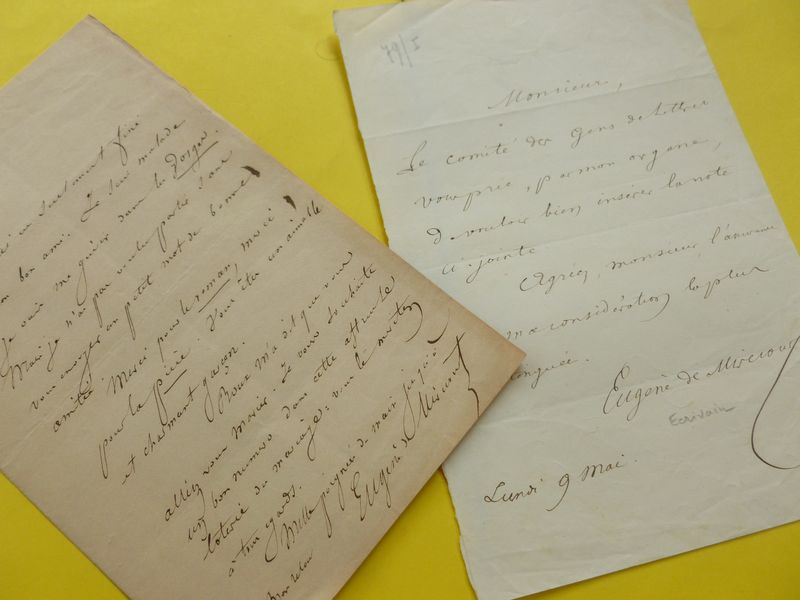 fini
bon ami. Je suis malade
Je vais me guérir dans les Vosges.
Mais je n'ai pas voulu partir sans
vous envoyer un petit mot de bonne
amitié
Merci pour le roman, merci
pour la pièce. Vous êtes un aimable
et charmant garçon.
m'a dit que vous
allez vous marier. Je vous souhaite
un bon numéro dans cette affreuse
loterie du mariage: vous le méritez
à tous égards.
Mille poignées de main jusqu'à
mon retour
Eugène de Mirecourt
79/I
Monsieur,
Le comité des Gens de lettres
vous prie, par mon organe,
de vouloir bien insérer la note
ci-jointe
Agréez, monsieur, l'assurance
de ma considération la plus
distinguée.
Eugène de Mirecourt
Ecrivain
Lundi 9 Mai.